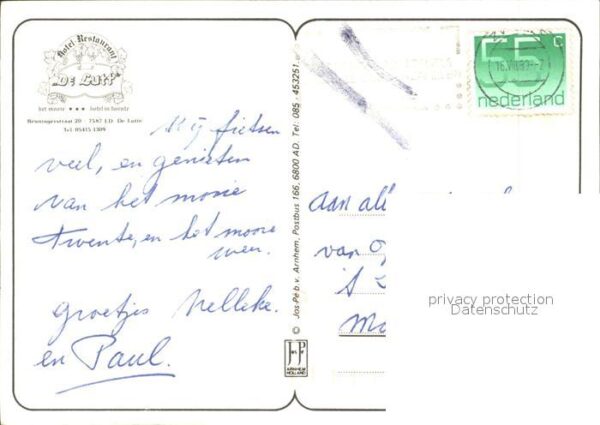 Hotel Restaurant
"De Lutt"
het mooie *** hotel in twente
Beuningerstraat 20 - 7587 LD De Lutte
Tel 05415 1309
Wij fietsen
veel, en genieten
van het mooie
Twente, en het mooie
weer.
groetjes Nelleke.
en Paul.
© Jos-Pé b.v. Arnhem, Postbus 166, 6800 AD. Tel: 085 - 453251
JP
ARNHEM
HOLLAND
55 c
nederland
aan all
van
privacy protection
Datenschutz